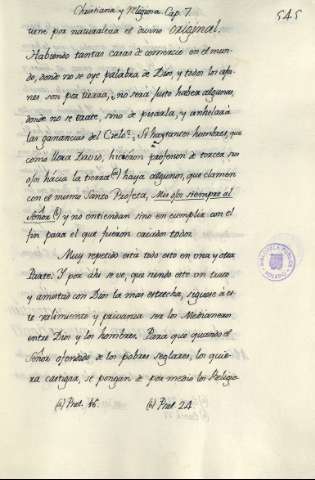 Christiana y Religiosa. Cap. 7. 545
tiene por naturaleza el divino original.
Habiendo tantas casas de comercio en el mun-
do, donde no se oye palabra de Dios, y todos los afa-
nes son por tierra, ¿no será justo haber algunas,
donde no se trate, sino de pesarla, y anhelar á
las ganancias del Cielo? Si hay tantos hombres, que
como llora David, hicieron profesion de torcer sus
ojos hácia la tierra (a) haya algunos, que clamen
con el mismo Santo Profeta, Mis ojos siempre al
Señor (b) y no entiendan sino en cumplir con el
fin para el que fueron criados todos.
Muy repetido está todo esto en una y otra
Parte: Y por ahi se ve, que siendo este un trato
y amistad con Dios la mas estrecha, siguese á es-
te valimiento y privanza ser los Medianeros
entre Dios y los hombres. Para que quando el
Señor ofendido de los pobres seglares, los quie-
ra castigar, se pongan de por medio los Religio-
(a) Psal. 16. (b) Psal 24.